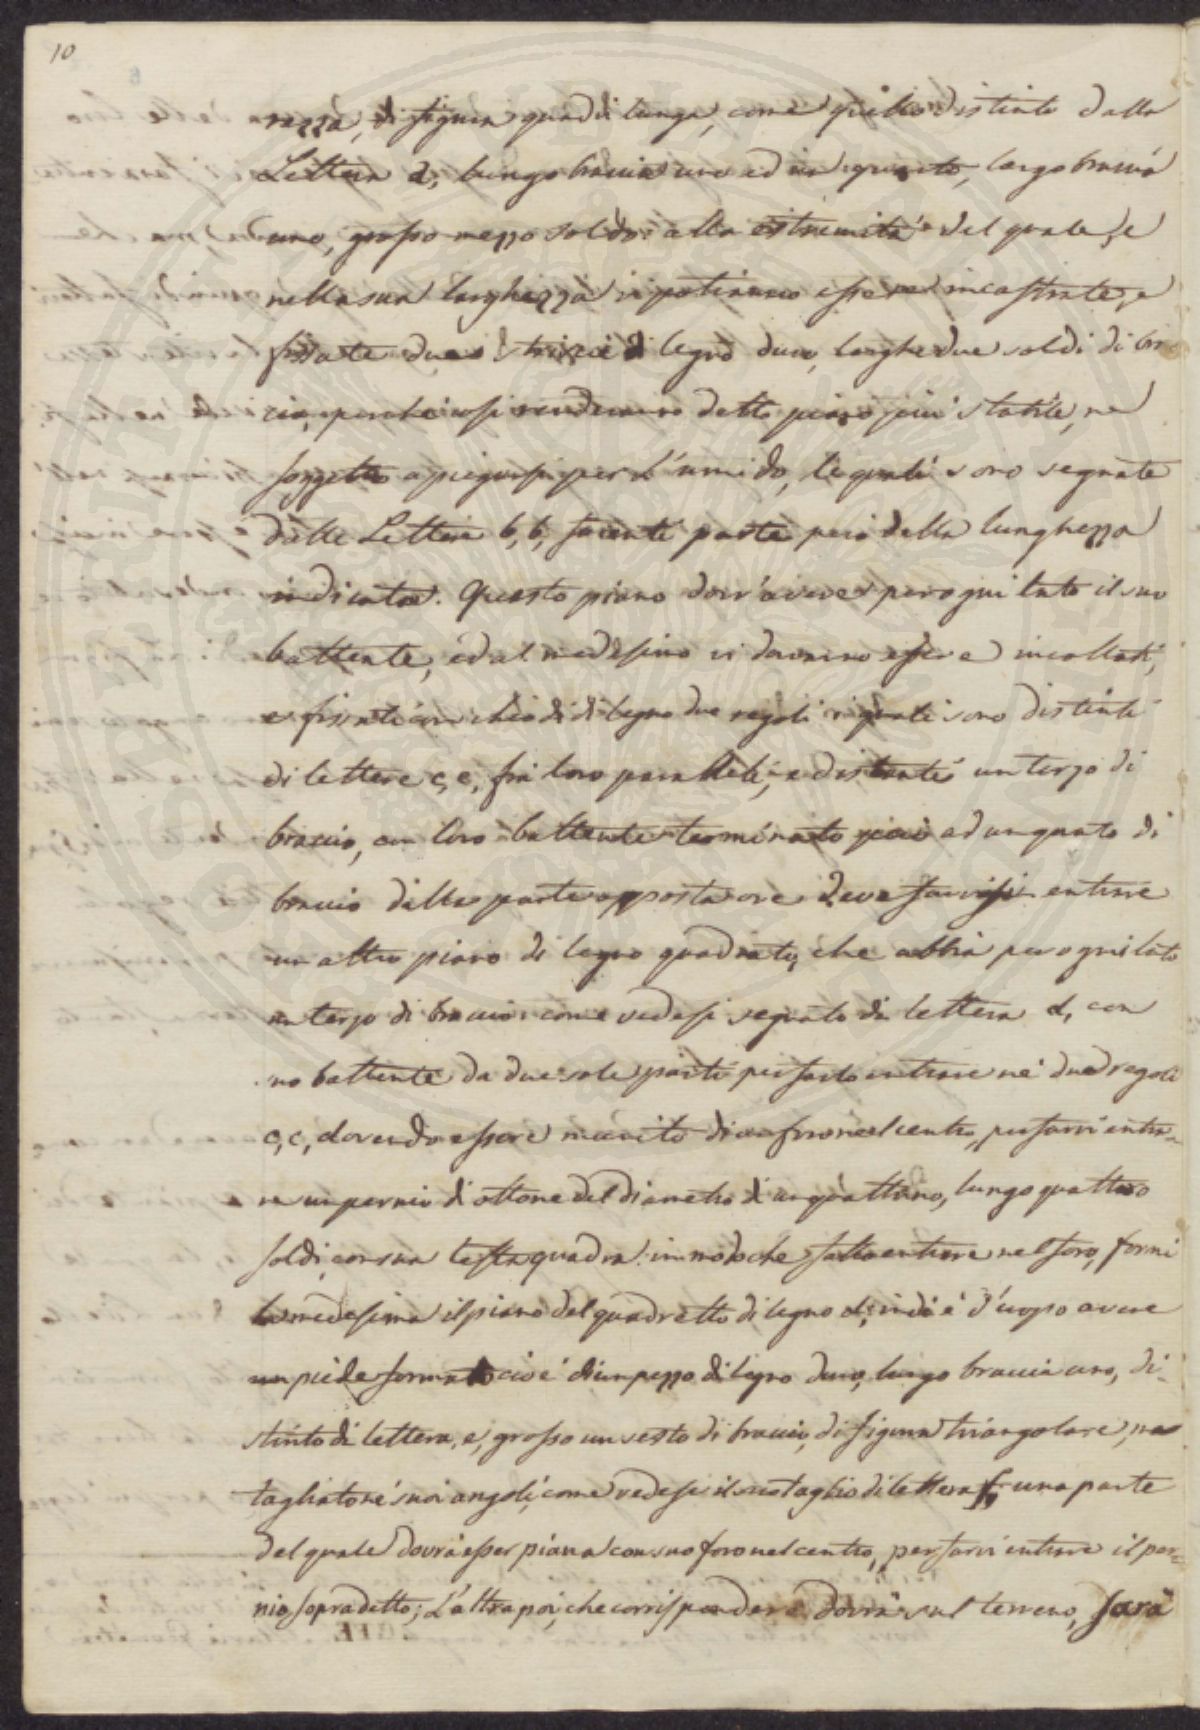 10
rezza, di figura quadrilunga, come quello distinto dalla
Lettera a, lungo braccia uno ed un quarto, largo braccia
uno, grosso mezzo soldo: alla estremità del quale, e
nella sua larghezza vi potranno essere incastrate, e
fissate due striscie di legno duro, larghe due soldi di brac
cio, perchè così renderanno detto piano più stabile, ne
soggetto a piegarsi per l'umido, le quali sono segnate
dalle Lettere b, b, facenti parte però della lunghezza
indicata. Questo piano dovrà avere per ogni lato il suo
battente, ed al medesimo vi dovranno essere incollati,
e fissati con chiodi di legno due regoli i quali sono distinti
di lettere c, c, fra loro paralleli, e distanti un terzo di
braccio, con loro battente terminato più ad un quarto di
braccio dalla parte opposta ove deve farvisi entrare
un altro piano di legno quadrato, che abbia per ogni lato
un terzo di braccio: come vedesi segnato di lettera d, con
suo battente da due sole parti per farlo entrare nei due regoli
c, c, dovendo essere munito di un foro nel centro, per farvi entra=
re un pernio di ottone del diametro di un quattrino, lungo quattro
soldi, con sua testa quadra: in modo che fatto entrare nel foro, formi
la medesima il piano del quadretto di legno d; indi è d'uopo avere
un piede formato cioè di un pezzo di legno duro, lungo braccia uno, di=
stinto di lettera, e, grosso un sesto di braccio, di figura triangolare, ma
tagliato ne' suoi angoli, come vedesi il suo taglio di lettera f, una parte
del quale dovrà esser piana con suo foro nel centro, per farvi entrare il per=
nio sopradetto; L'altra poi, che corrispondere dovrà sul terreno, sarà